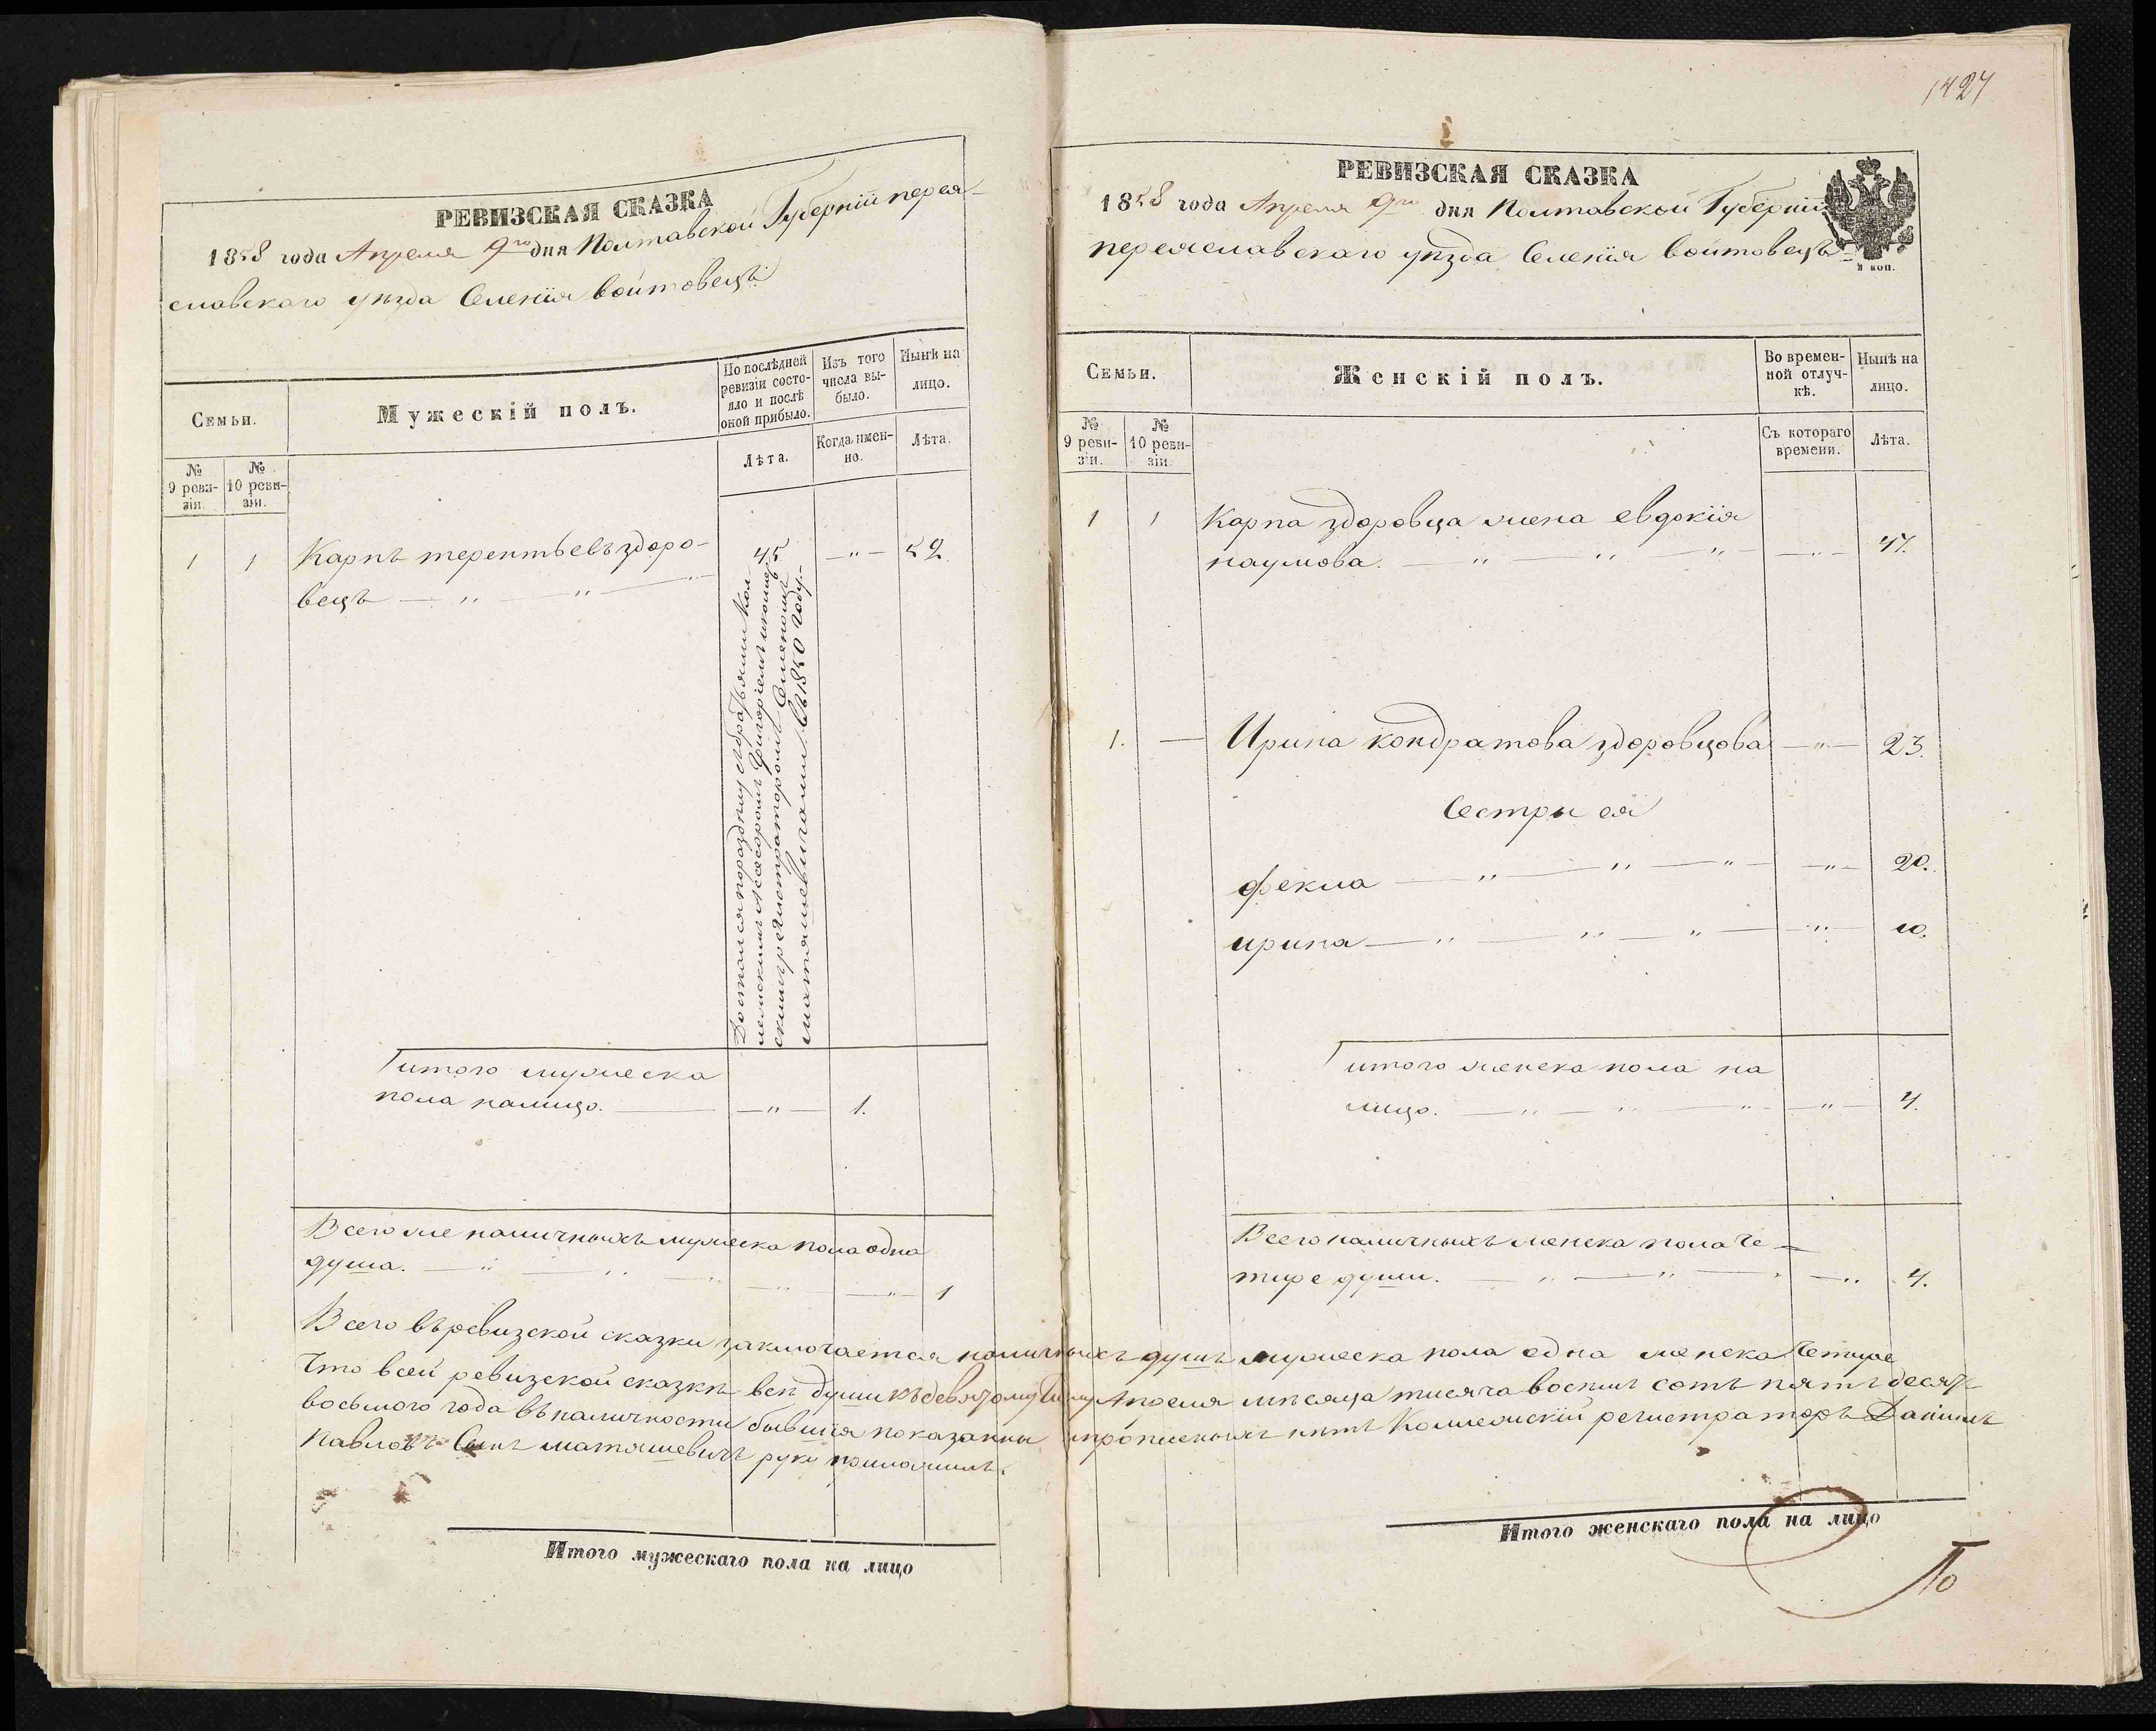 РЕВИЗСКАЯ СКАЗКА
1858 года Апреля 9го дня Полтавской Губерніи перея-
славскаго уѣзда Селенія войтовецъ
Семьи.
Мужескій полъ.
По послѣдней ревизіи состояло и послѣ оной прибыло.
Изъ того числа выбыло.
Нынѣ на лицо.
№ 9 ревизіи.
№ 10 ревизіи.
Лѣта.
Когда именно.
Лѣта.
1 1 Карпъ терентьевъ здоро- 45 —„— 52
вецъ — „ — „ —
Достался по разделу
Григоріемъ
Матяшевичами Въ 1850 году.
итого мужеска
пола налицо. — —„— 1.
Всего же наличныхъ мужеска пола одна
душа. — „ — „ — 1
РЕВИЗСКАЯ СКАЗКА
1858 года Апреля 9го дня Полтавской Губерніи
переяславскаго уѣзда Селенія войтовецъ
1427
Семьи.
Женскій полъ.
Во временной отлучкѣ.
Нынѣ на лицо.
№ 9 ревизіи.
№ 10 ревизіи.
Съ котораго времени.
Лѣта.
1 1 Карпа здоровца жена евдокія
наумова. — „ — „ — „ — —„— 47.
1. — Ирина кондратова здоровцова —„— 23.
Сестры ея
фекла — „ — „ — „ — —„— 20.
ирина — „ — „ — „ — —„— 10.
итого женска пола на
лицо. — „ — „ — „ — „ — 4.
Всего наличныхъ женска пола че-
тире души. — „ — „ — 4.
Всего въ ревизской сказки заключается наличныхъ душъ мужеска пола одна женска Четире
Что всей ревизской сказкѣ всѣ души къ девятому числу Апреля мѣсяца тисяча восимъ сотъ пять десятъ
восьмого года въ наличности бывшія показанны и пропиеныхъ нѣтъ Коллежскій регистраторъ Даніилъ
Павловъ Сынъ матяшевичъ руку приложилъ.
Итого мужескаго пола на лицо
Итого женскаго пола на лицо
По